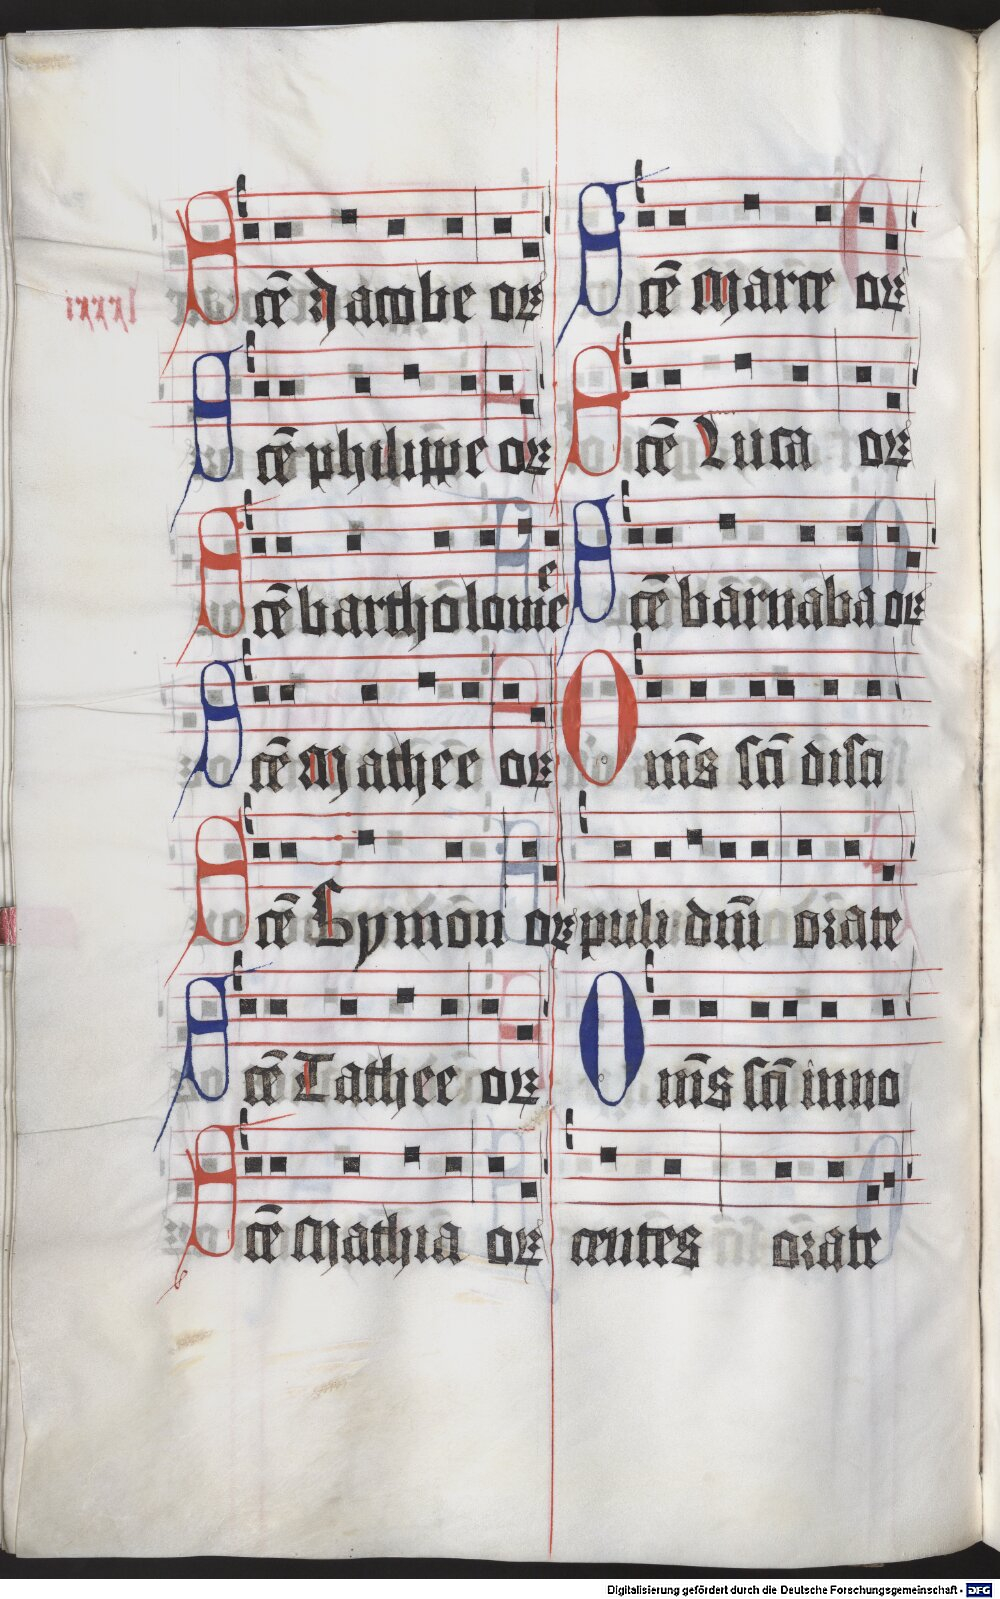 Scē Jacobe or
Scē philippe or
Scē bartholomee
Scē Mathee or
Scē Symon or
Scē Tathee or
Scē Mathia or
Scē Marce or
Scē Luca or
Scē barnaba or
Om̄s sc̄i disci
puli dn̄i orate
Om̄s sc̄i inno
centes orate
Digitalisierung gefördert durch die Deutsche Forschungsgemeinschaft - DFG